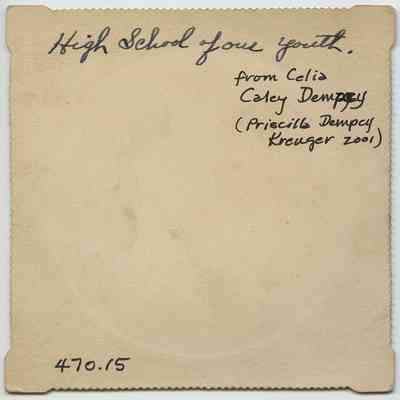 High School of our Youth.
from Celia
Caley Dempcy
(Priscilla Dempcy
Kreuger 2001)
470.15